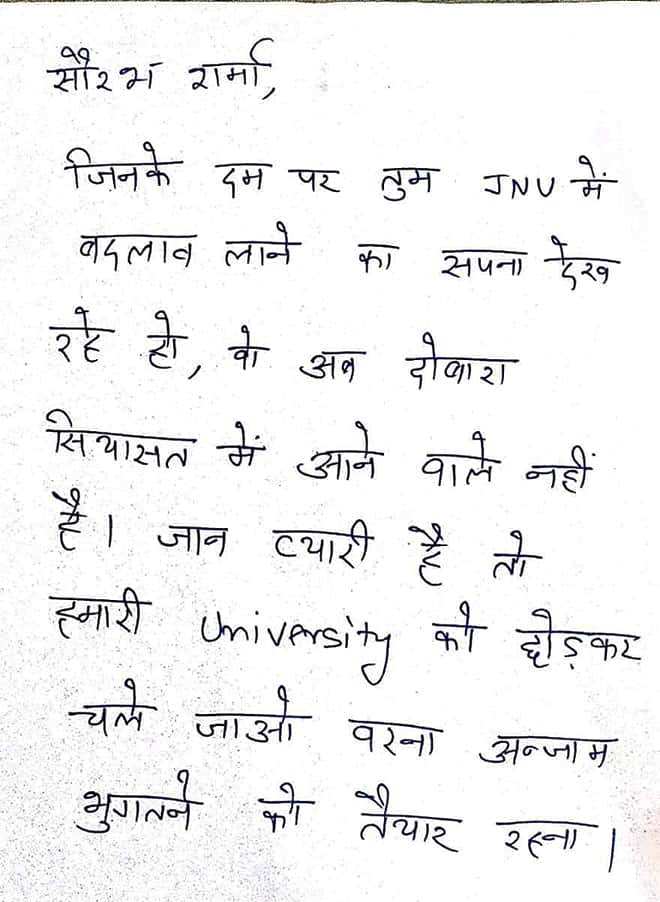 सौरभ शर्मा,
जिनके दम पर तुम JNU में
बदलाव लाने का सपना देख
रहे हो, वो अब दोबारा
सियासत में आने वाले नहीं
है। जान प्यारी है तो
हमारी University को छोड़कर
चले जाओ वरना अन्जाम
भुगतने को तैयार रहना।